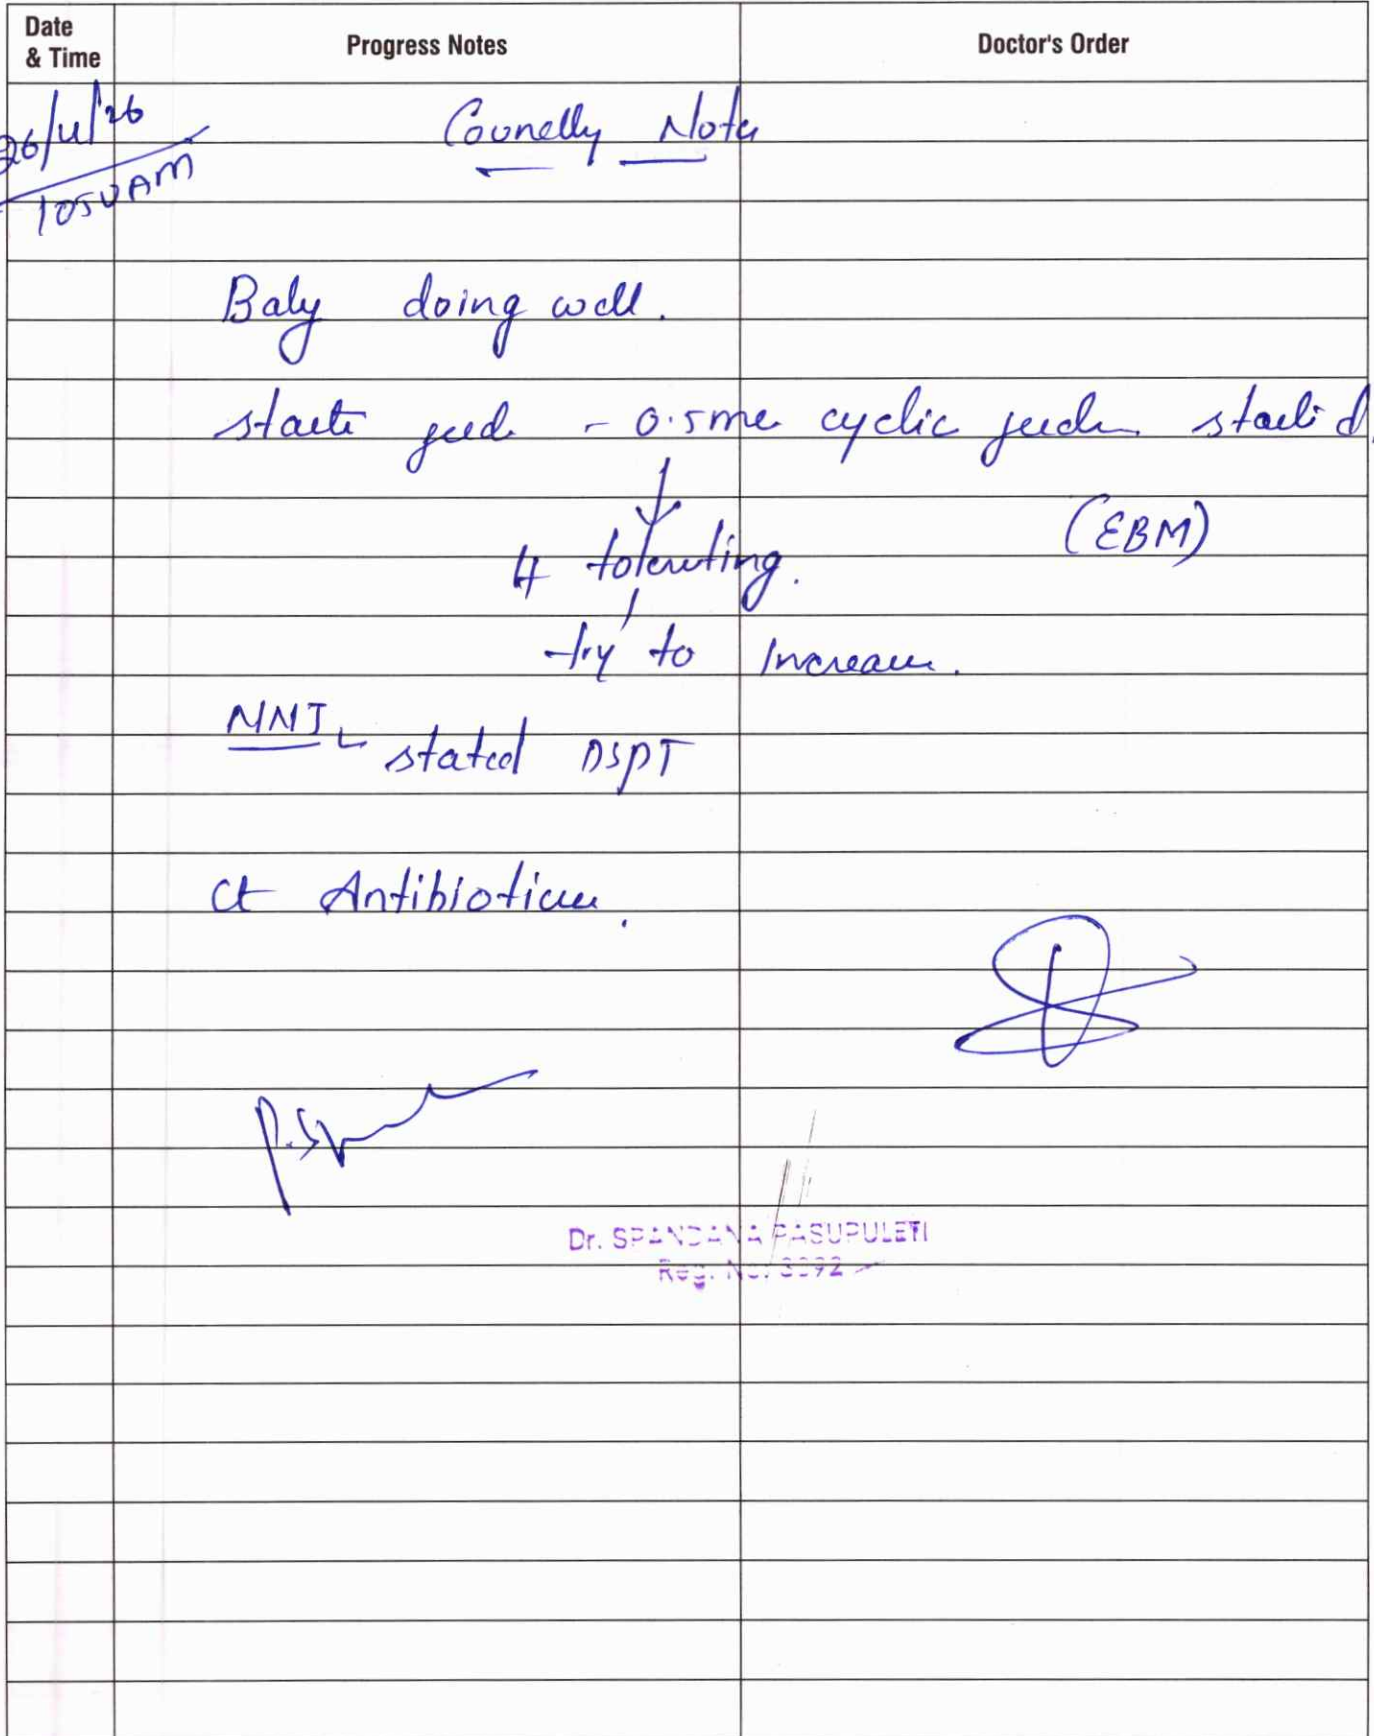 Date & Time
Progress Notes
Doctor's Order
26/4/26
1050AM
Counselly Notes
Baby doing well.
starte feed - 0.5ml cyclic feeds started.
(EBM)
If tolerating.
try to Increase.
NNJ - stated DSPT
Ct Antibiotics.
Dr. SPANDANA PASUPULETI
Reg. No.